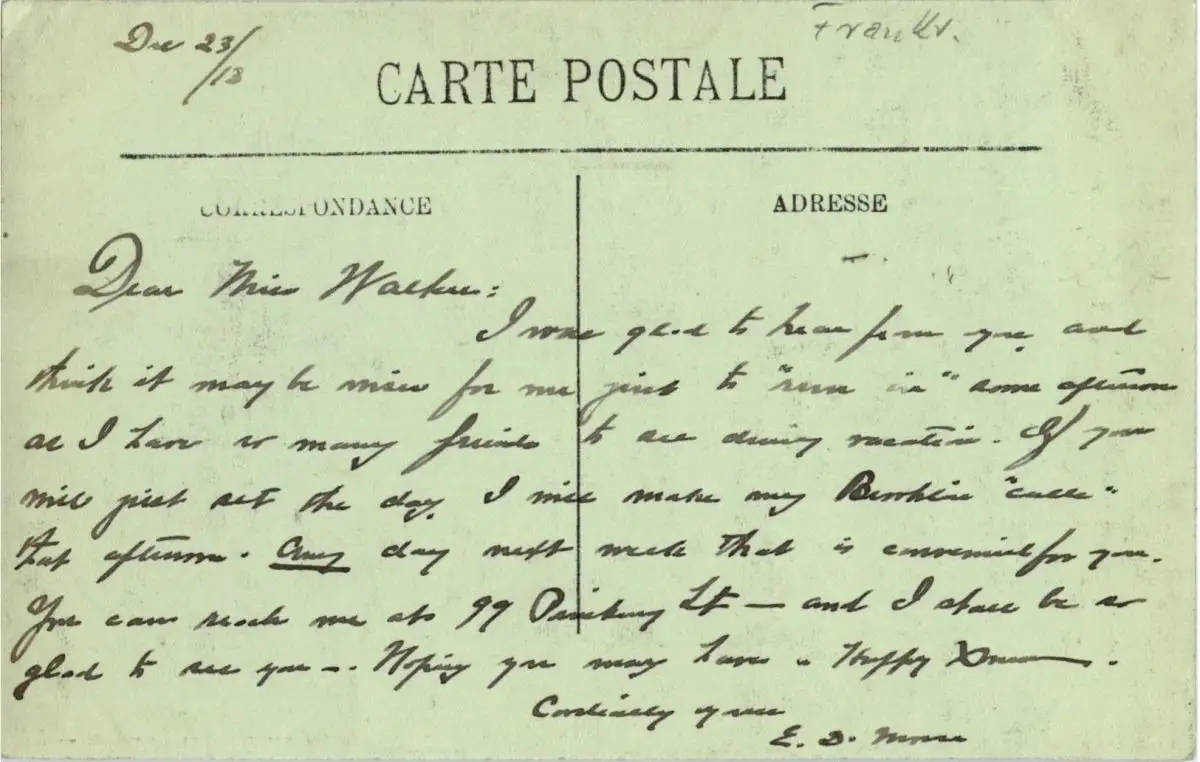 Dec 23/13
Frankr.
CARTE POSTALE
CORRESPONDANCE
ADRESSE
Dear Miss Walker:
I was glad to hear from you and
think it may be wiser for me just to "run in" some afternoon
as I have so many friends to see during vacation. If you
will just set the day, I will make my Brookline "calls"
that afternoon. Any day next week that is convenient for you.
You can reach me at 99 St — and I shall be so
glad to see you —. Hoping you may have a Happy Xmas — .
Cordially yours
E. D. Morse